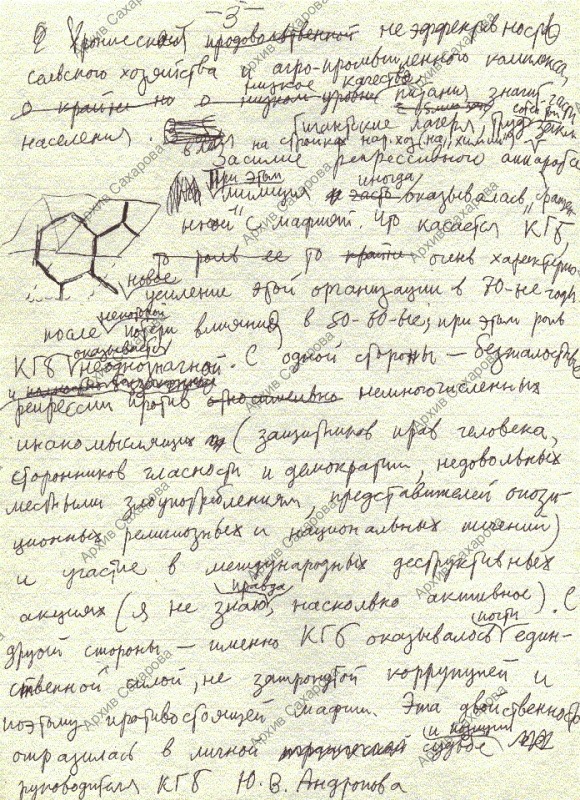 -3-
О хронической продовольственной неэффективности
сельского хозяйства и агро-промышленного комплекса,
низкое качество
о крайне но о низком уровне питания значит. части
населения. Гигантские лагеря,
в на стройках нар. хоз. (на „химии")
засилие репрессивного аппарата
При этом иногда
милиция и часто оказывалась „сращен-
ной" с мафией. Что касается КГБ,
то роль ее то крайне очень характерно
новое
усиление этой организации в 70-ые годы
некоторой
после потери влияния в 50-60-ые; при этом роль
оказывается
КГБ неоднозначной. С одной стороны – безжалостные
репрессии против относительно немногочисленных
инакомыслящих (защитников прав человека,
сторонников гласности и демократии, недовольных
местными злоупотреблениям, представителей опози-
ционных религиозных и национальных течений)
и участие в международных деструктивных
правда
акциях (я не знаю, насколько активное). С
почти
другой стороны – именно КГБ оказывалось един-
ственной силой, не затронутой коррупцией и
поэтому противостоящей мафии. Эта двойственность
и позиции
отразилась в личной судьбе
руководителя КГБ Ю. В. Андропова
Архив Сахарова